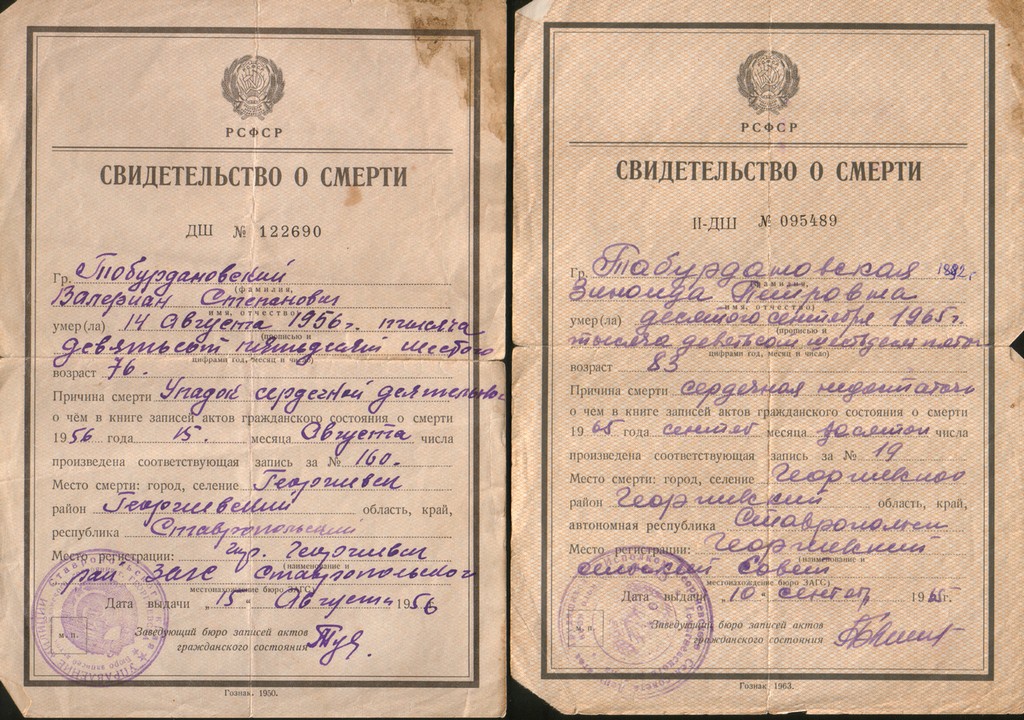 РСФСР
СВИДЕТЕЛЬСТВО О СМЕРТИ
ДШ № 122690
Гр. Тобурдановский
(фамилия,
Валериан Степанович
имя, отчество)
умер(ла) 14 Августа 1956 г. тысяча
(прописью и
девятьсот пятьдесят шестого
цифрами год, месяц и число)
возраст 76.
Причина смерти Упадок сердечной деятельнос
о чём в книге записей актов гражданского состояния о смерти
1956 года 15. месяца Августа числа
произведена соответствующая запись за № 160.
Место смерти: город, селение Георгиевск
район Георгиевский область, край,
республика Ставропольский
Место регистрации: гор. Георгиевск
(наименование и
рай ЗАГС Ставропольского
местонахождение бюро ЗАГС)
Дата выдачи „15“ Августа 1956
М. П.
Заведующий бюро записей актов
гражданского состояния
Гознак. 1950.
РСФСР
СВИДЕТЕЛЬСТВО О СМЕРТИ
II-ДШ № 095489
Гр. Табурдановская 1882 г
(фамилия,
Зиноида Петровна
имя, отчество)
умер(ла) десятого сентебря 1965 г.
(прописью и
тысяча девятьсом шестьдесят пятого
цифрами год, месяц и число)
возраст 83
Причина смерти сердечная недостаточн
о чём в книге записей актов гражданского состояния о смерти
1965 года сентеб месяца десятого числа
произведена соответствующая запись за № 19
Место смерти: город, селение Георгиевског
район Георгиевский область, край,
автономная республика Ставропольск
Место регистрации: Георгиевский
(наименование и
сельский Совет
местонахождение бюро ЗАГС)
Дата выдачи „10“ сентеб 1965 г.
М. П.
Заведующий бюро записей актов
гражданского состояния
Гознак 1963.